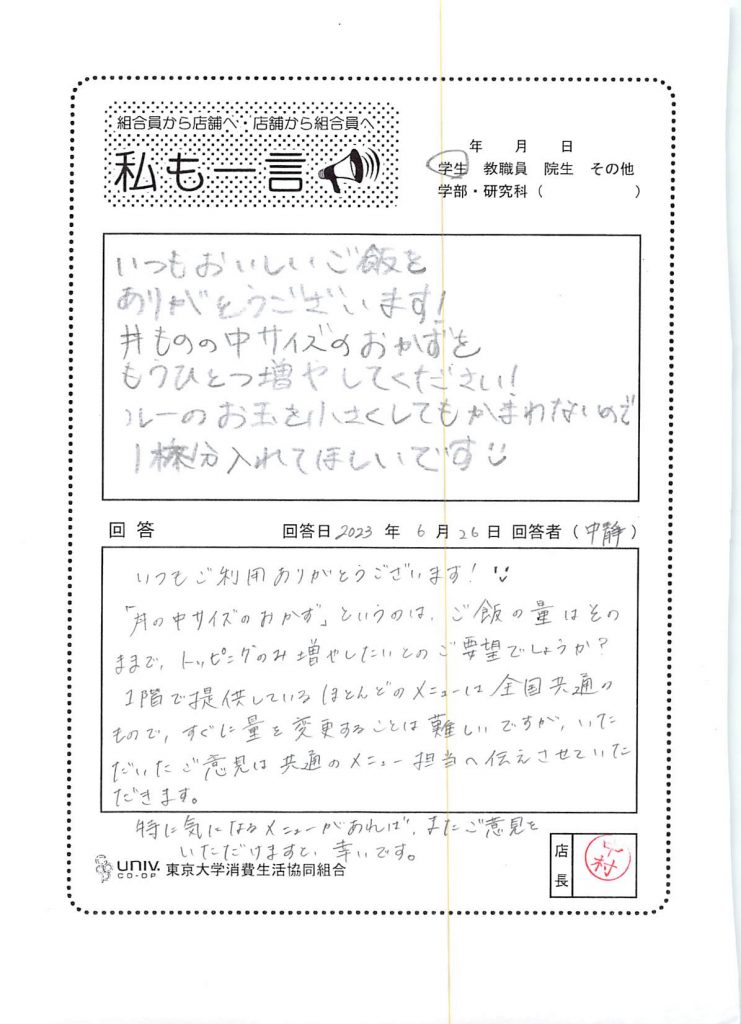 組合員から店舗へ・店舗から組合員へ
私も一言
年 月 日
学生 教職員 院生 その他
学部・研究科（ ）
いつもおいしいご飯を
ありがとうございます!
丼ものの中サイズのおかずを
もうひとつ増やしてください!
ルーのお玉を小さくしてもかまわないので
1株分入れてほしいです
回答 回答日 2023 年 6 月 26 日 回答者（中静）
いつもご利用ありがとうございます!
「丼の中サイズのおかず」というのは、ご飯の量はその
ままで、トッピングのみ増やしたいとのご要望でしょうか?
1階で提供しているほとんどのメニューは全国共通の
もので、すぐに量を変更することは難しいですが、いた
だいたご意見は共通のメニュー担当へ伝えさせていた
だきます。
特に気になるメニューがあれば、またご意見を
いただけますと、幸いです。
UNIV. CO-OP 東京大学消費生活協同組合
店長
村